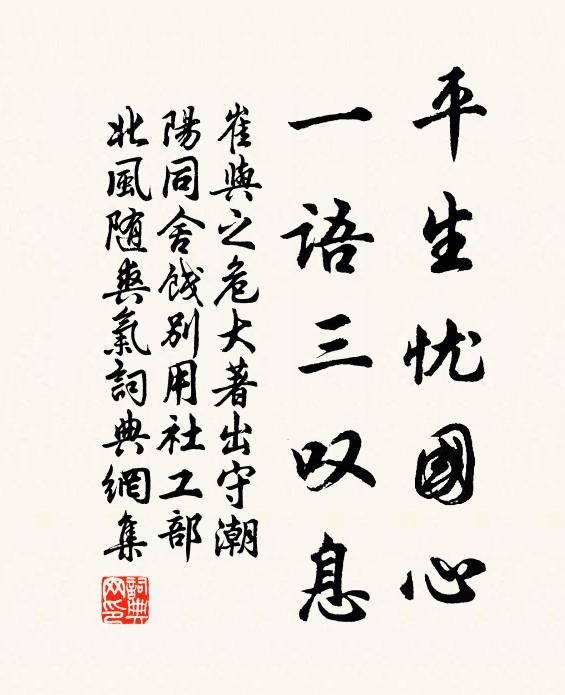 平生忧國心
一语三叹息
崔與之危大著出守潮
陽同舍餞别用社工部
北風随爽氣詞典網集
詞典
网印